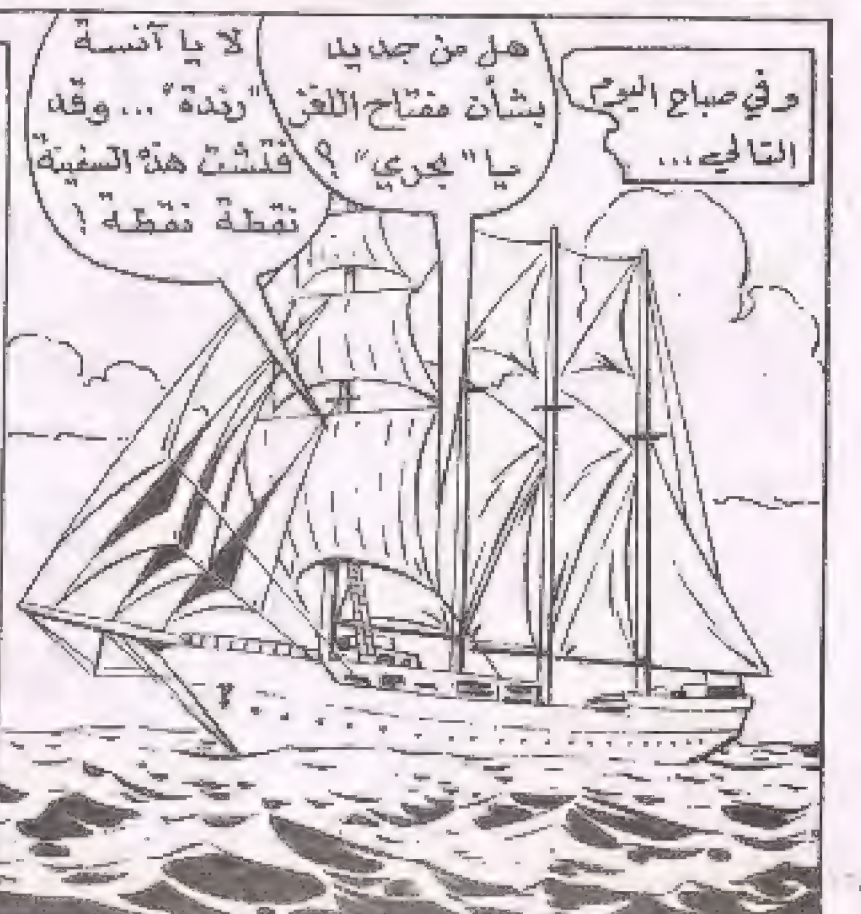 وفي صباح اليوم
التالي...
هل من جديد
بشأن مفتاح اللغز
يا "بحري" ؟
لا يا آنسة
"رندة"... وقد
فتشت هذه السفينة
نقطة نقطة !